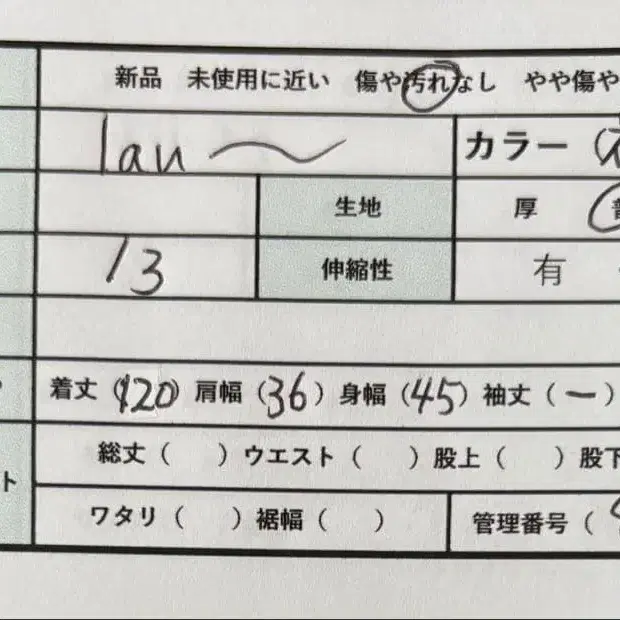 新品 未使用に近い 傷や汚れなし やや傷や
lau〜 カラー（
生地 厚
13 伸縮性 有
着丈（120）肩幅（36）身幅（45）袖丈（ー）
総丈（ ）ウエスト（ ）股上（ ）股下
ト
ワタリ（ ）裾幅（ ） 管理番号（